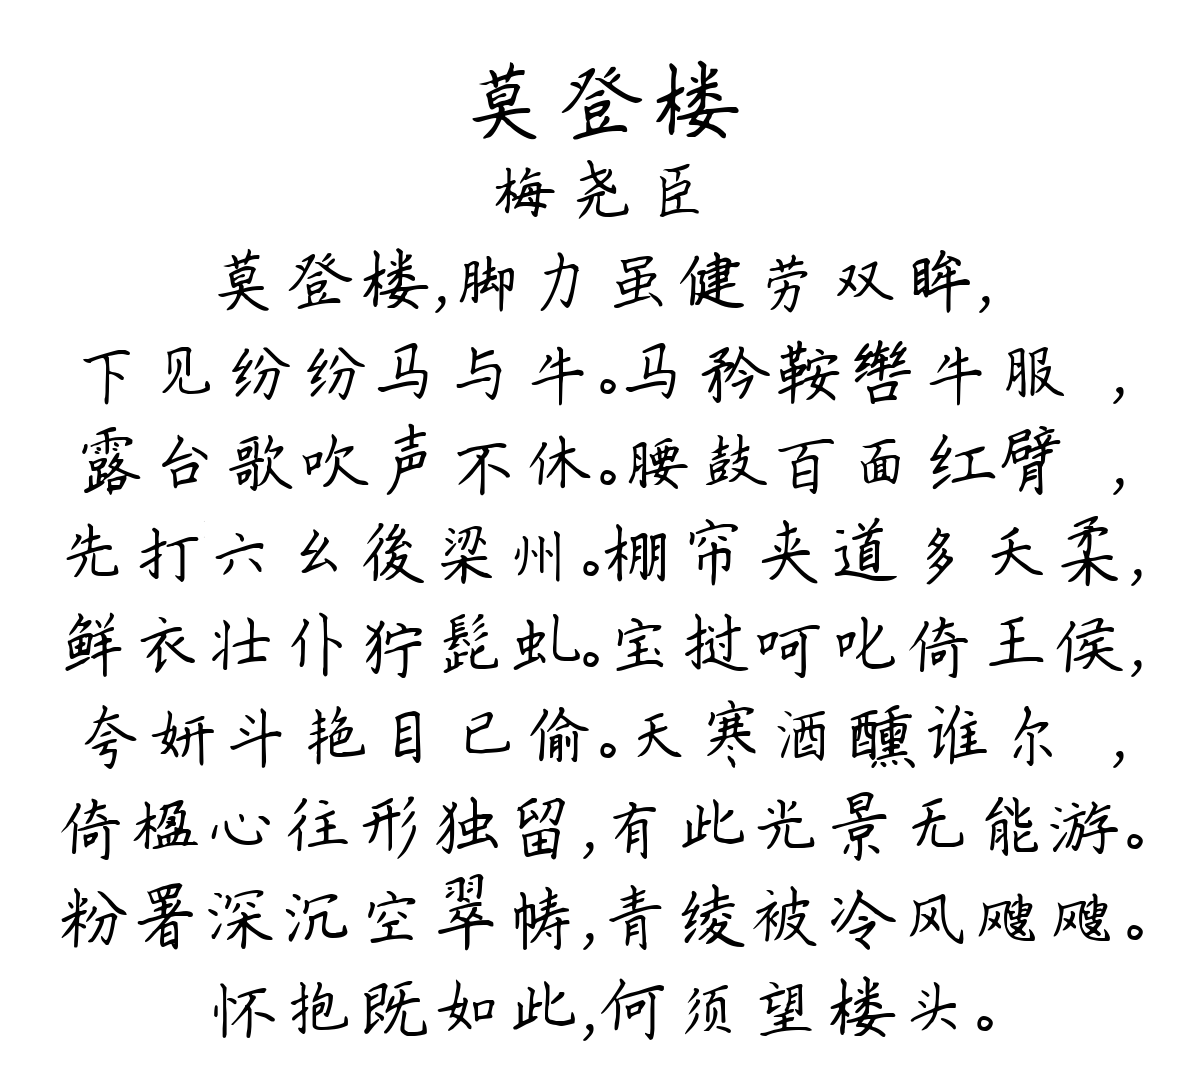 莫登楼
梅尧臣
莫登楼,脚力虽健劳双眸,
下见纷纷马与牛。马矜鞍辔牛服,
露台歌吹声不休。腰鼓百面红臂,
先打六幺後梁州。棚帘夹道多夭柔,
鲜衣壮仆狞髭虬。宝挝呵叱倚王侯,
夸妍斗艳目已偷。天寒酒醺谁尔,
倚楹心往形独留,有此光景无能游。
粉署深沉空翠帱,青绫被冷风飕飕。
怀抱既如此,何须望楼头。